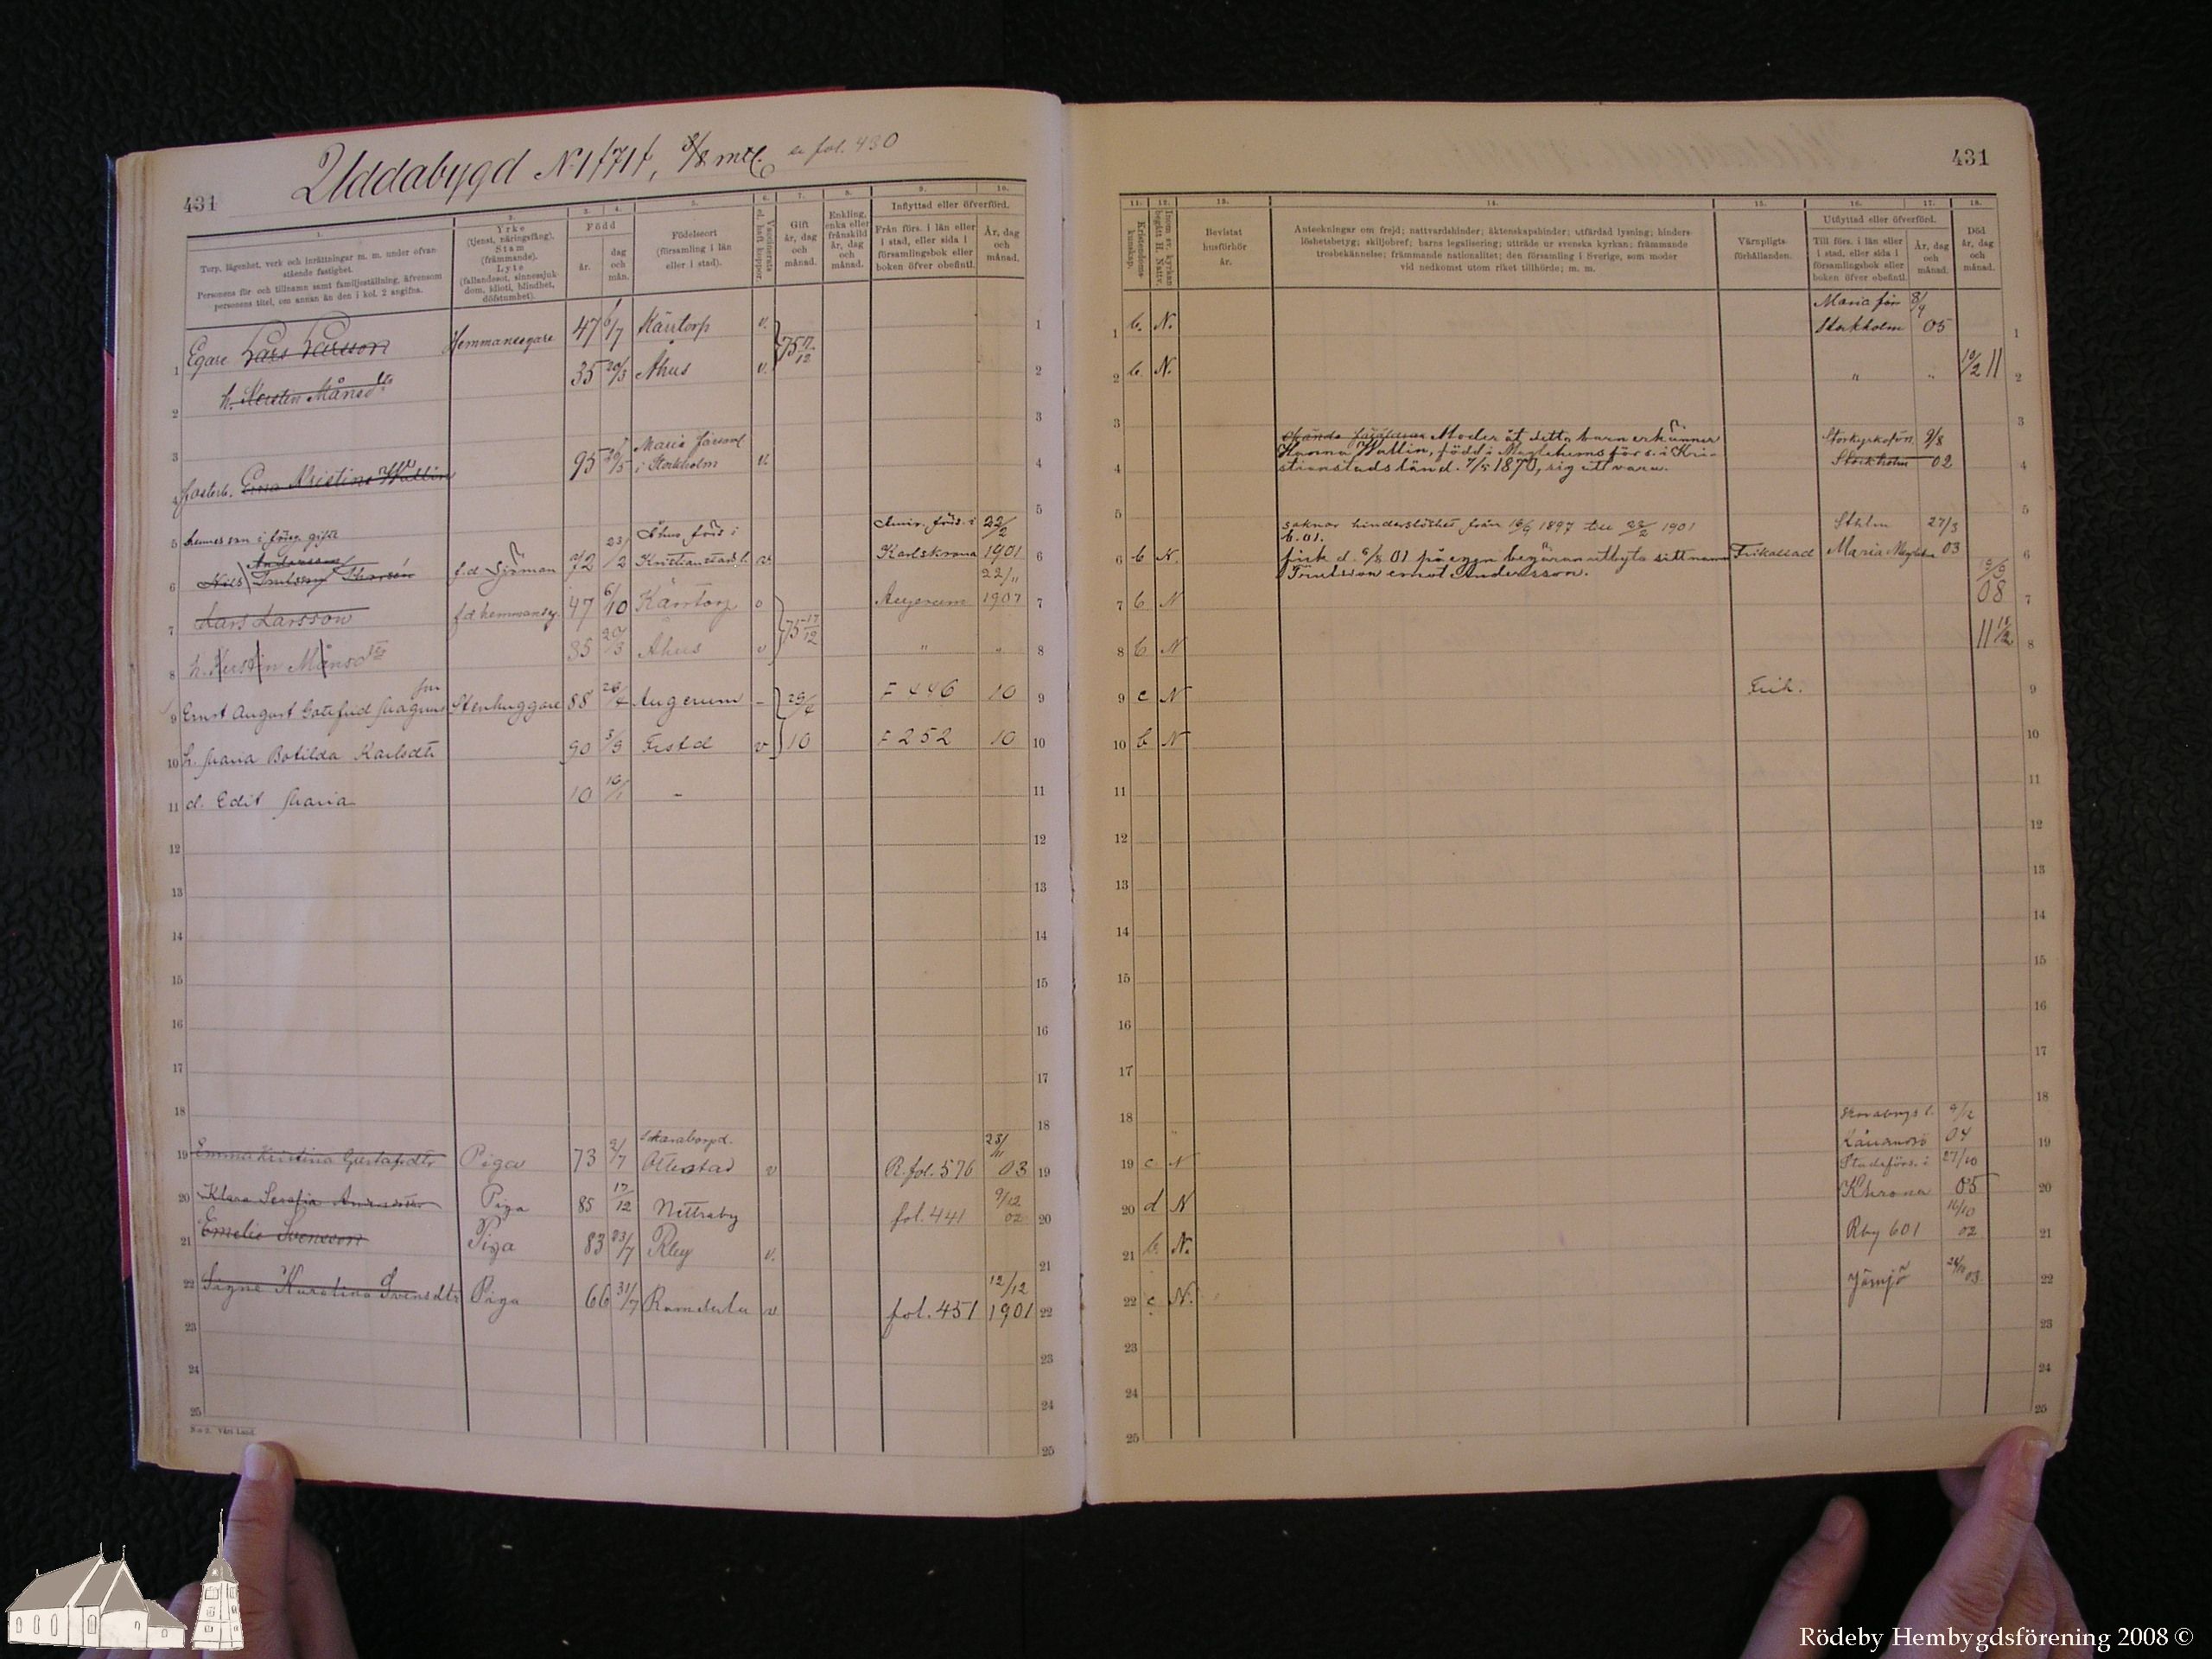 431
Uddabygd No 1 f 71 f, 3/8 mtl. se fol. 430
1.
Torp, lägenhet, verk och inrättningar m. m. under ofvan
stående fastighet.
Personens för- och tillnamn samt familjeställning, äfvensom
personens titel, om annan än den i kol. 2 angifna.
2.
Yrke
(tjenst, näringsfång).
Stam
(främmande).
Lyte
(fallandesot, sinnessjuk-
dom, idioti, blindhet,
döfstumhet).
3. 4.
Född
år.
dag
och
mån.
5.
Födelseort
(församling i län
eller i stad).
6.
Vaccinerats
el. haft koppor.
7.
Gift
år, dag
och
månad.
8.
Enkling,
enka eller
frånskild
år, dag
och
månad.
9. 10.
Inflyttad eller öfverförd.
Från förs. i län eller
i stad, eller sida i
församlingsbok eller
boken öfver obefintl.
År, dag
och
månad.
1 Egare Lars Larsson Hemmansegare 47 6/7 Kärrtorp v. 75 17/12 1
2 h. Kerstin Månsdtr 35 20/3 Åhus v. 2
3 3
4 fosterb. Erna Kristina Wallin 95 20/5 Maria församl i Stockholm v. 4
5 hennes son i föreg. gifte 5
6 Nils Truelsson Thorsén Andersson f.d Sjöman 72 23/2 Åhus förs i Kristianstads l. v. Amir. förs. i Karlskrona 22/2 1901 6
7 Lars Larsson f.d hemmanseg. 47 6/10 Kärrtorp v 75 17/12 Augerum 22/11 1907 7
8 h. Kerstin Månsdtr 35 20/3 Åhus v " " 8
9 Ernst August Gotfrid Magnusson Stenhuggare 88 26/4 Augerum - 29/4 F 446 10 9
10 h. Maria Botilda Karlsdtr 90 3/9 Fristd v 10 F 252 10 10
11 d. Edit Maria 10 16/1 - 11
12 12
13 13
14 14
15 15
16 16
17 17
18 18
19 Emma Kristina Gustafsdtr Piga 73 2/7 Skaraborgs l. Ottestad v R. fol. 576 23/11 03 19
20 Klara Serafia Andersdtr Piga 85 17/12 Nettraby fol. 441 9/12 02 20
21 Emelie Svensson Piga 83 23/7 Rby v. 21
22 Signe Karolina Svensdtr Piga 66 31/7 Ramdala v. fol. 451 12/12 1901 22
23 23
24 24
25 25
N:o 2. Vårt Land.
431
11.
Kristendoms-
kunskap.
12.
Inom sv. kyrkan
begått H. Nattv.
13.
Bevistat
husförhör
år.
14.
Anteckningar om frejd; nattvardshinder; äktenskapshinder; utfärdad lysning; hinders-
löshetsbetyg; skiljobref; barns legalisering; utträde ur svenska kyrkan; främmande
trosbekännelse; främmande nationalitet; den församling i Sverige, som moder
vid nedkomst utom riket tillhörde; m. m.
15.
Värnpligts-
förhållanden.
16. 17.
Utflyttad eller öfverförd.
Till förs. i län eller
i stad, eller sida i
församlingsbok eller
boken öfver obefintl.
År, dag
och
månad.
18.
Död
år, dag
och
månad.
1 b. N. Maria för. Stockholm 8/9 05 1
2 b. N. " " 10/2 11 2
3 3
Okända föräldrar Moder åt detta barn erkänner
Hanna Wallin, född i Maglehems förs. i Kri-
4 stianstads län d. 7/5 1870, sig ett vara. Storkyrkoförs. Stockholm 9/8 02 4
5 saknar hinderslöshet från 16/9 1897 till 22/2 1901 5
b. 01.
6 b N. fick d. 6/8 01 på egen begäran utbyta sitt namn Frikallad Sthlm Maria Magdalena 27/3 03 6
Truelsson emot Andersson.
7 b N 08 7
8 b N 11 8
9 c N Frik. 9
10 b N 10
11 11
12 12
13 13
14 14
15 15
16 16
17 17
18 18
19 c. N Skaraborgs l. 9/12 04 19
20 d N Stadsförs. i Khrona 27/10 05 20
21 b. N. Rby 601 16/10 02 21
22 c N. Jämjö 03 22
23 23
24 24
25 25
Rödeby Hembygdsförening 2008 ©